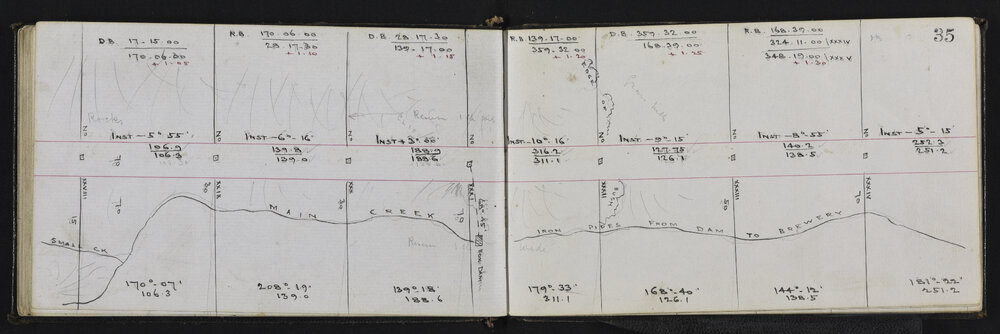 35
D.B. 17-15.00
170.06.00
+ 1.05
R.B. 170.06.00
28.17.30
+ 1.10
D.B. 28.17.30
139-17.00
+ 1.15
R.B. 139.17.00
359.32.00
+ 1.20
D.B. 359.32.00
168.39.00
+ 1.25
R.B. 168.39.00
324.11.00 /XXXIV
348.19.00 /XXXV
+ 1.30
Rocks
EDGE OF
BUSH
No No No No No No No
INST - 5° 55'
106.9
106.3
INST - 6° - 16'
139.8
139.0
INST + 3° 00'
188.9
188.6
INST - 10° - 16'
316.2
311.1
INST - 9° - 15'
127.75
126.1
INST - 8° - 55'
140.2
138.5
INST - 5° - 15'
252.3
251.2
XXVIII
XXIX
XXX
XXXI
XXXII
XXXIII
XXXIV
70
15
70
30
30
70
50
SMALL CK
MAIN CREEK
IRON PIPES FROM DAM TO BREWERY
170° - 07'
106.3
208° - 19'
139.0
139° 18'
188.6
179° 33'
311.1
168° - 40'
126.1
144° - 12'
138.5
181° - 22'
251.2